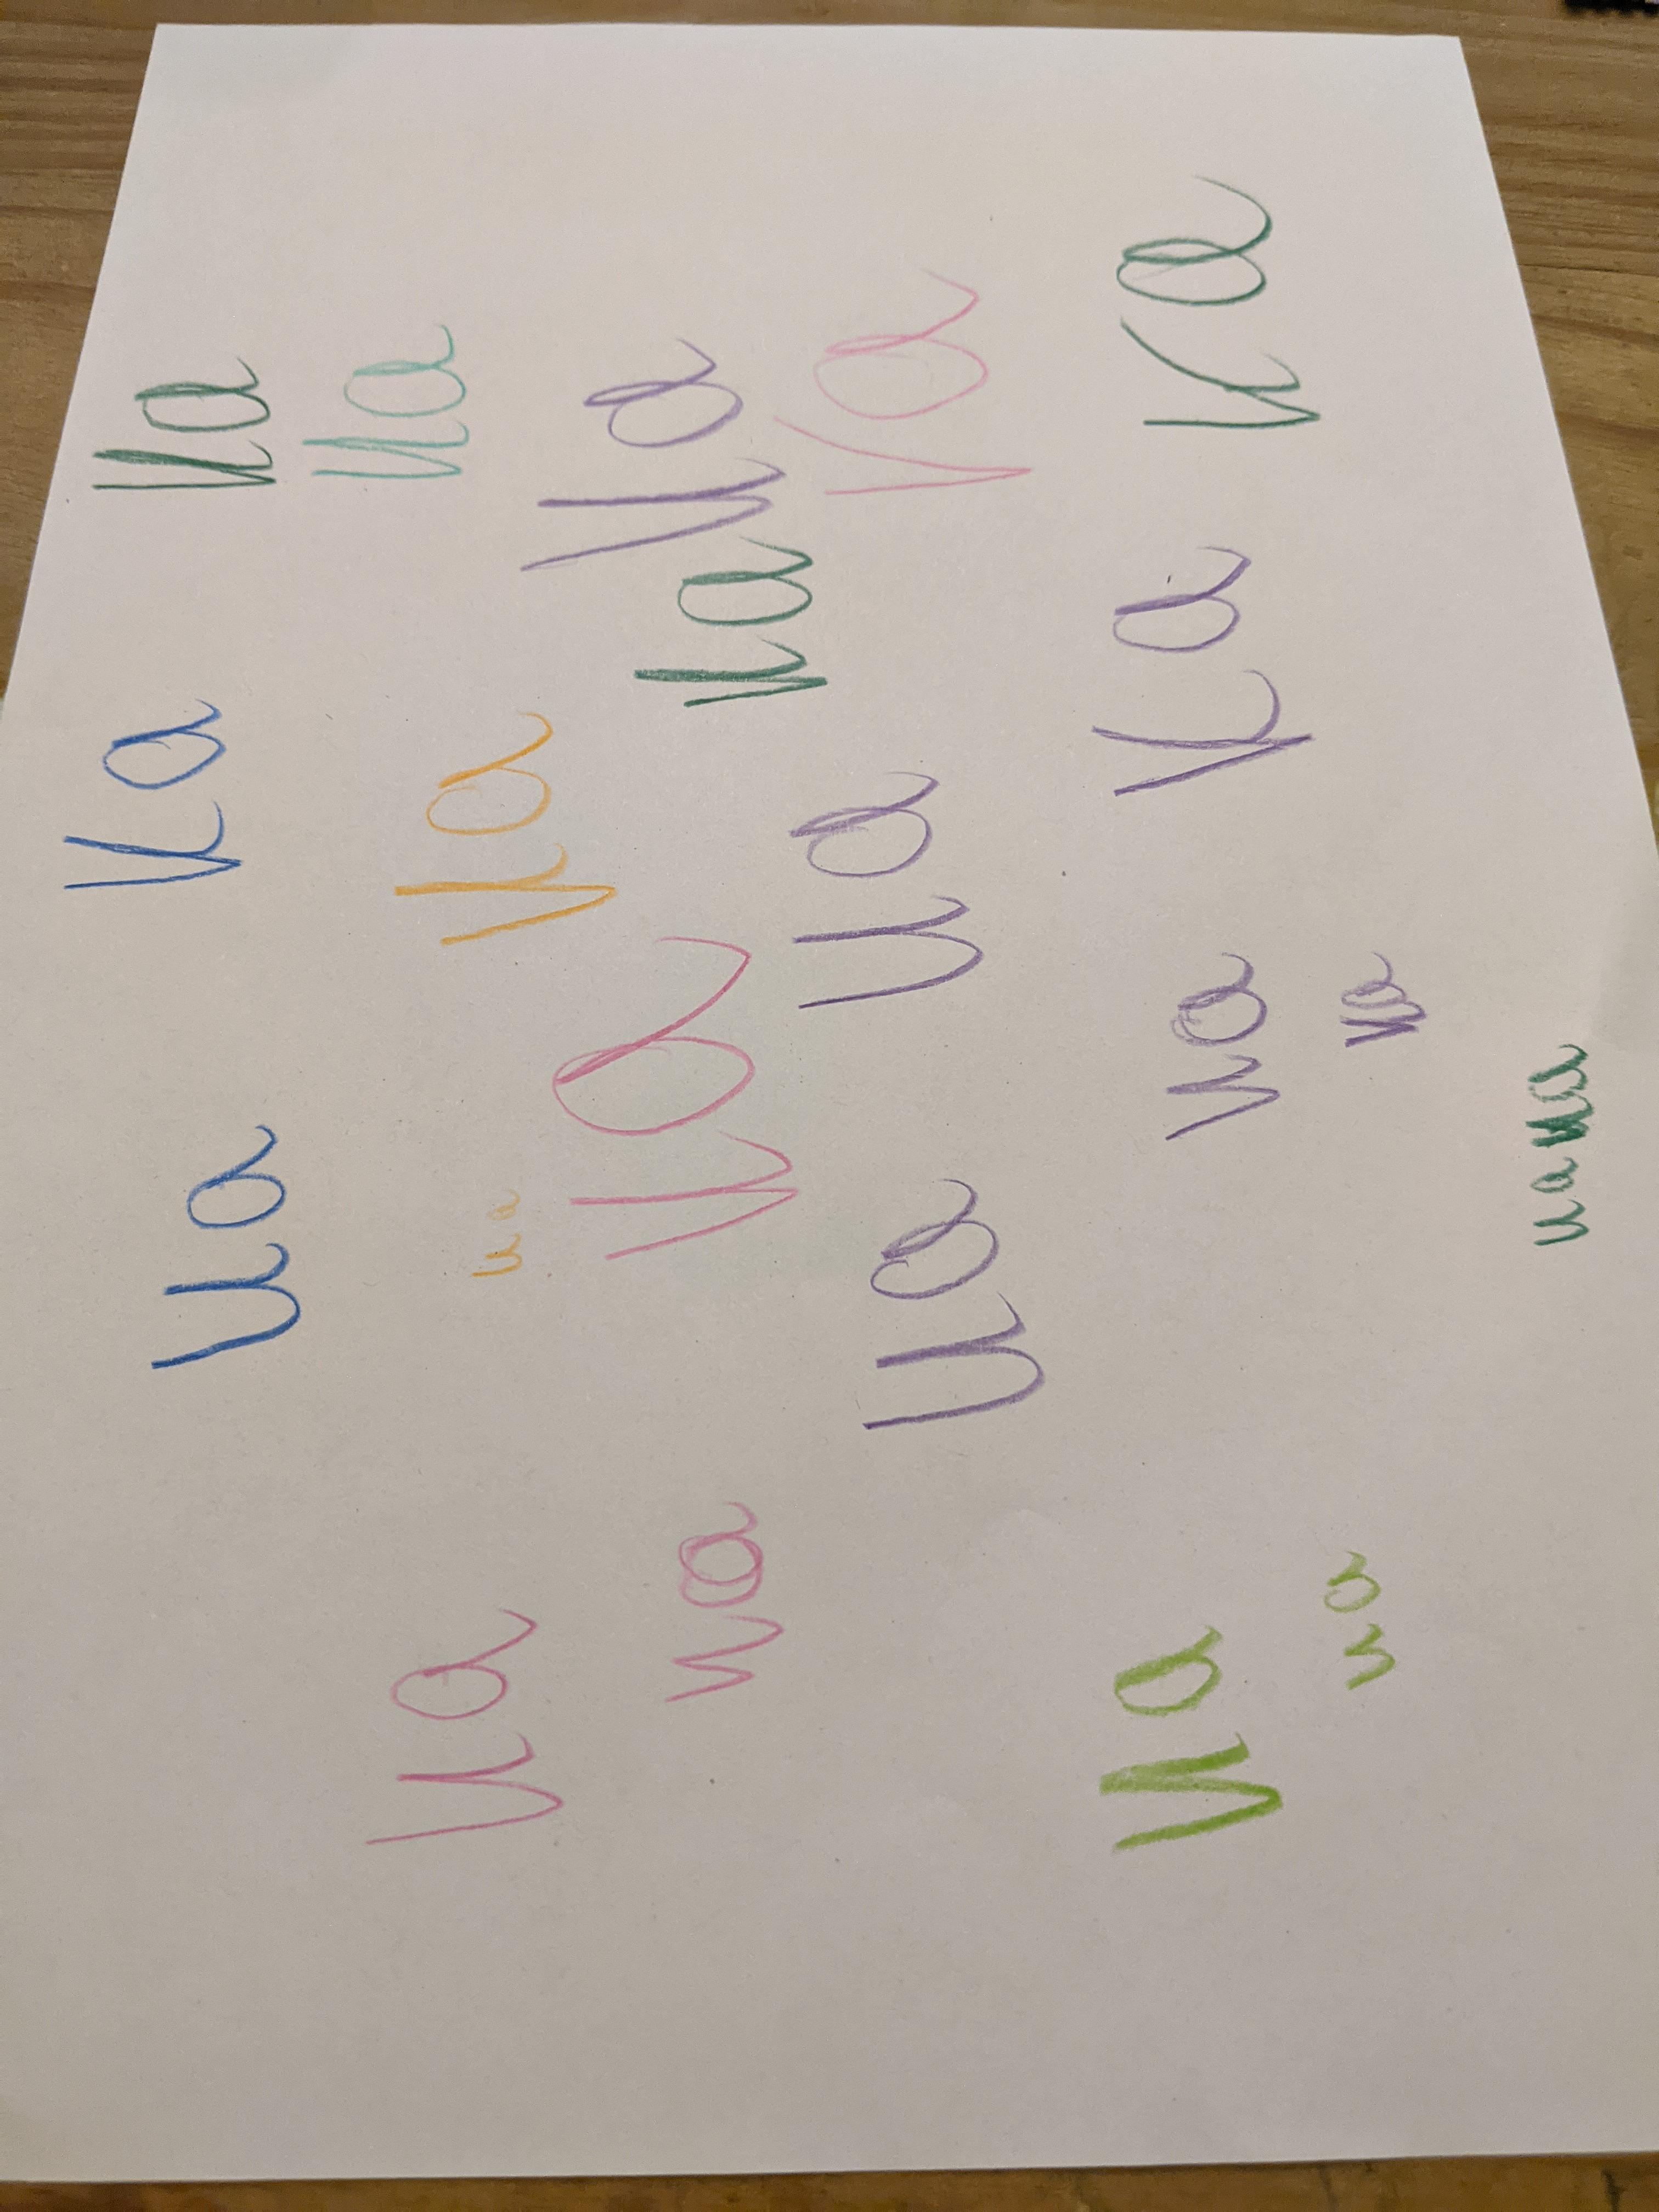 ua ua ua
ua ua ua ua
ua ua ua ua
ua ua ua
ua ua ua ua
ua ua
uaua